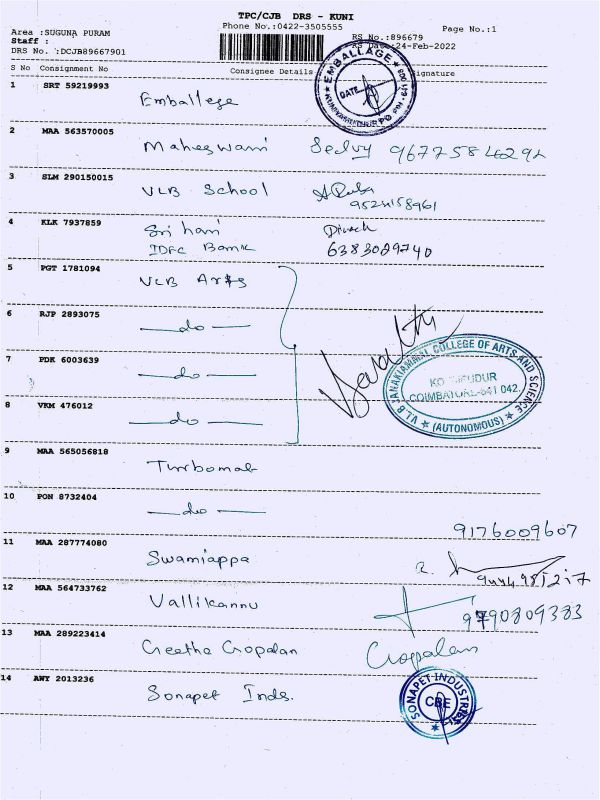 TPC/CJB DRS - KUNI
Area :SUGUNA PURAM Phone No.:0422-3505555 Page No.:1
Staff : RS No.:896679
DRS No. :DCJB89667901 RS Date:24-Feb-2022
S No Consignment No Consignee Details Signature
1 SRT 59219993 Emballege
EMBALLAGE
DATE
2 MAA 563570005 Maheswari Selvy
3 SLM 290150015 VLB School
9524158961
4 KLK 7937859 Sri hari
IDFC Bank 6383029740
5 PGT 1781094 VLB Arts
6 RJP 2893075 —do—
7 PDK 6003639 —do—
V.L.B. JANAKIAMMAL COLLEGE OF ARTS AND SCIENCE
COIMBATORE-641 042.
★ (AUTONOMOUS) ★
8 VKM 476012 —do—
9 MAA 565056818 Turbomat
10 PON 8732404 —do—
9176009607
11 MAA 287774080 Swamiappa
12 MAA 564733762 Vallikannu 9790809383
13 MAA 289223414 Geetha Gopalan Gopalan
14 AWY 2013236 Sonapet Inds.
SONAPET INDUSTRIES
CBE